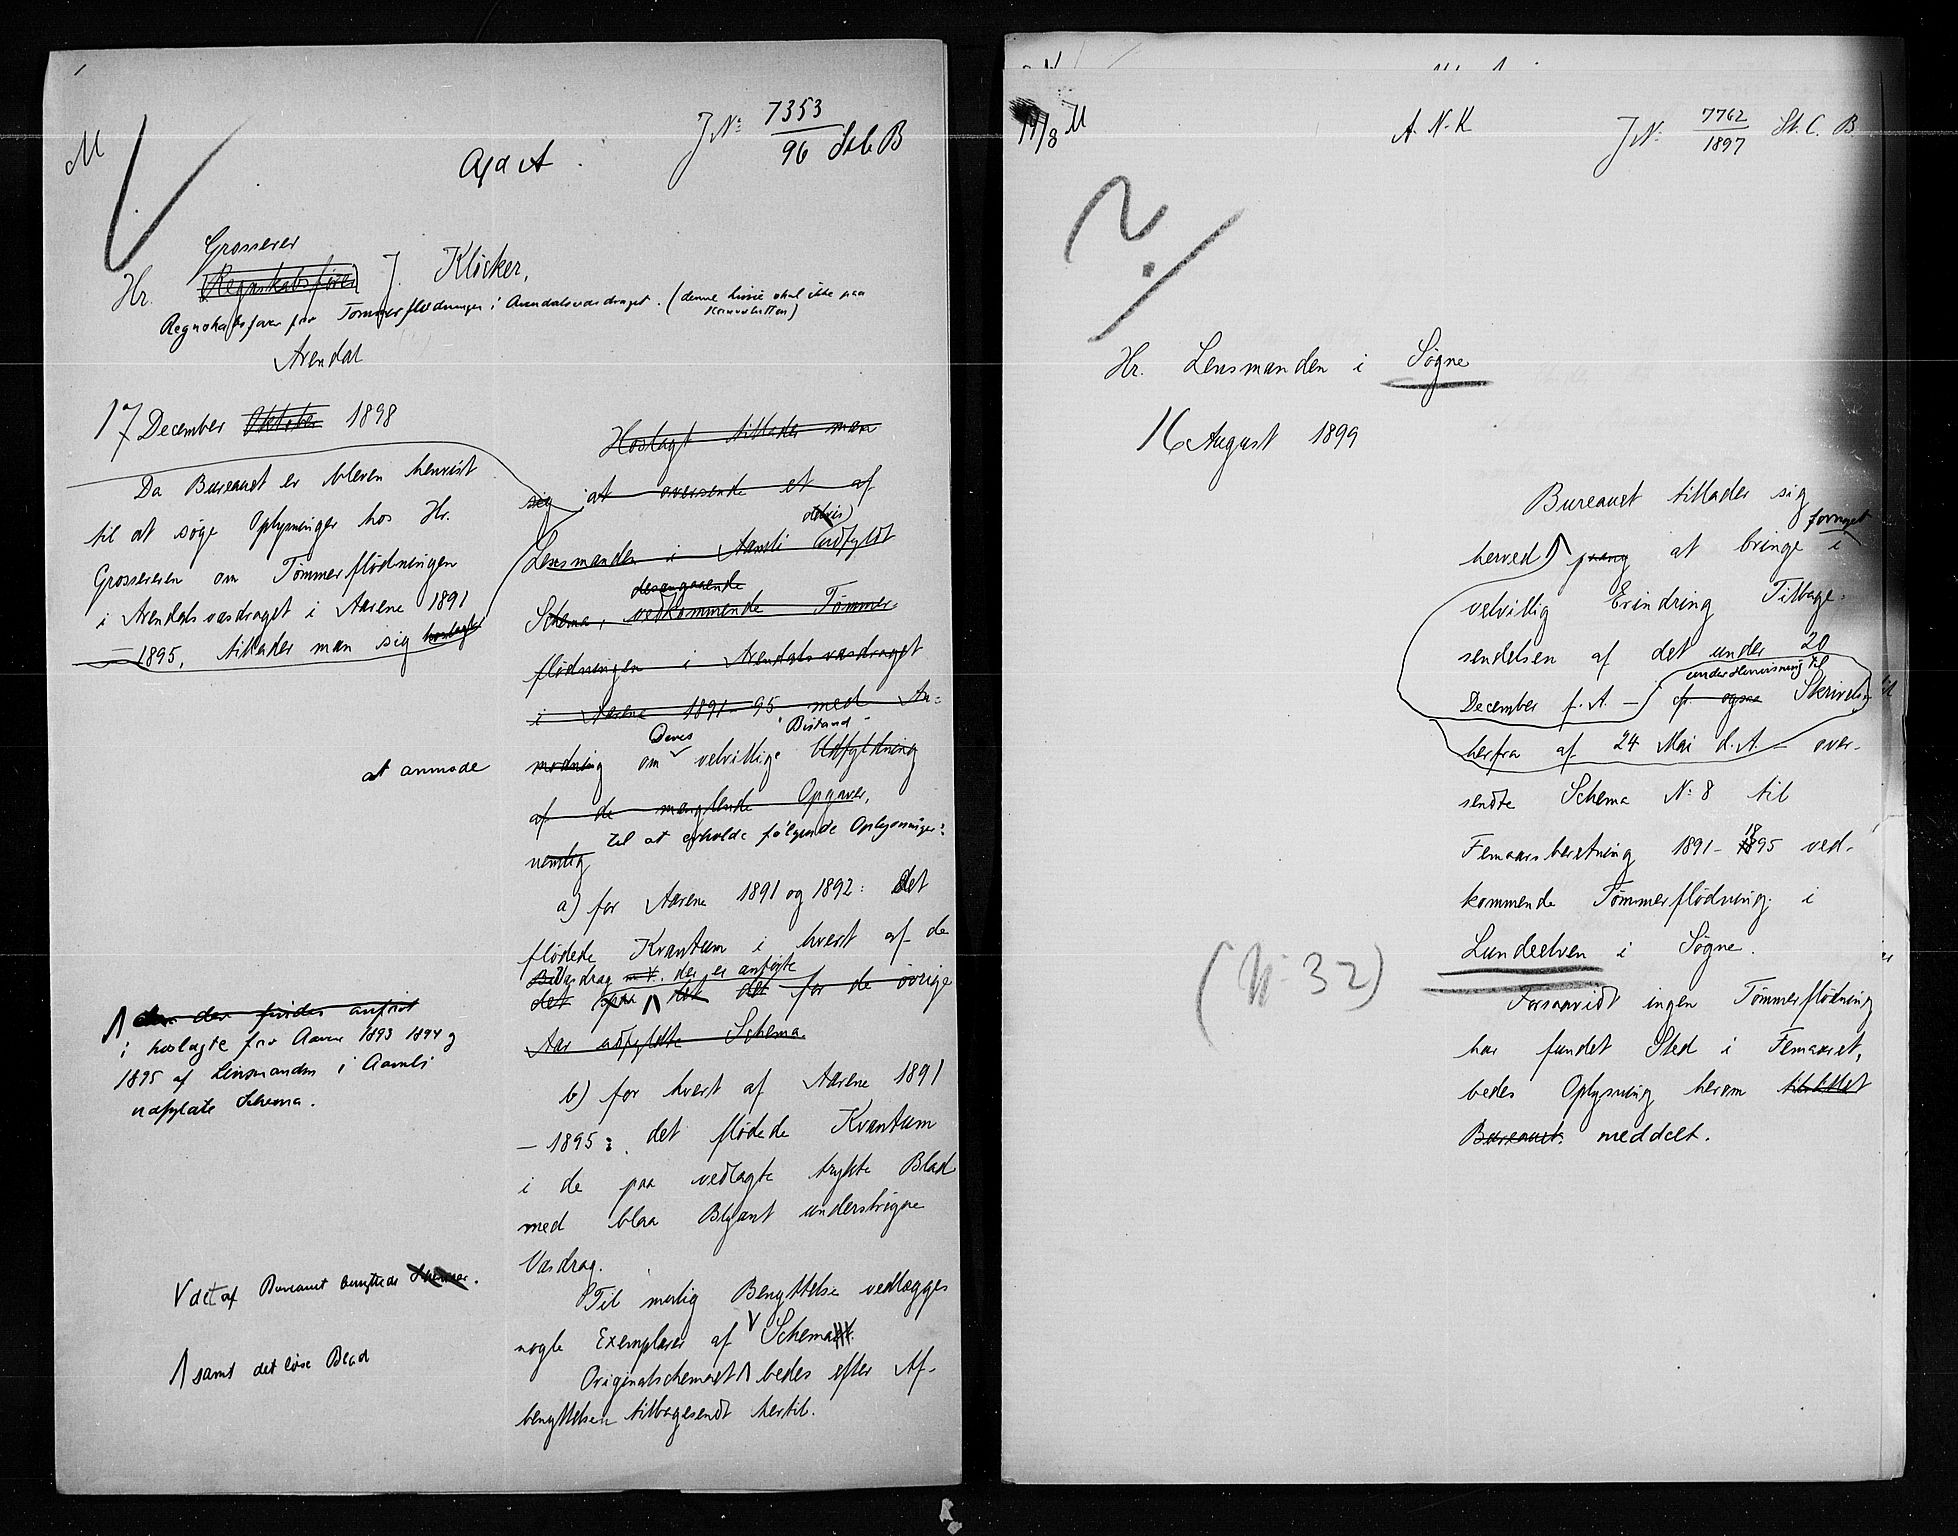 M
J N: 7353/96 Stb B
Afd A.
Grosserer
Hr. Regnskabsfører J. Klöcker,
Regnskabsfører for Tømmerflødningen i Arendalsvasdraget. (denne linie skal ikke paa
Konvolutten)
Arendal
17 December Oktober 1898
Da Bureauet er bleven henvist
til at søge Oplysninger hos Hr.
Grossereren om Tømmerflödningen
i Arendalsvasdraget i Aarene 1891
– 1895, tillader man sig hoslagt
at anmode
der findes anført
i hoslagte for Aarene 1893 1894 og
1895 af Lensmanden i Aamli
udfyldte Schema.
V det af Bureauet benyttede
samt det løse Blad
Hoslagt tillader man
sig at oversende et af
delvis
Lensmanden i Aamli udfyldt
desangaaende
Schema, vedkommende Tømmer-
flödningen i Arendalsvasdraget
i Aarene 1891–95 med An-
Deres Bistand
modning om velvillig Udfyldning
af de manglende Opgaver,
til at erholde følgende Oplysninger:
nemlig
a) for Aarene 1891 og 1892: det
flödede Kvantum i hvert af de
Vasdrag der er anførte
det paa det for de övrige
Aar udfyldte Schema.
b) for hvert af Aarene 1891
– 1895: det flödede Kvantum
i de paa vedlagte trykte Blad
med blaa Blyant underströgne
Vasdrag.
Til mulig Benyttelse vedlægges
nogle Exemplarer af V Schema
Originalschemaet bedes efter Af-
benyttelsen tilbagesendt hertil.
19/8 M
A. N. K
J N. 7762/1897 St. C. B.
Hr. Lensmanden i Søgne
16 August 1899
Bureauet tillader sig
fornyet
herved paany at bringe i
velvillig Erindring Tilbage-
sendelsen af det under 20
under Henvisning til
December f. A. – cfr. ogsaa Skrivelse
herfra af 24 Mai d. A. – over-
sendte Schema N: 8 til
Femaarsberetning 1891–1895 ved-
kommende Tömmerflödning i
Lundeelven i Søgne.
(N: 32)
Forsaavidt ingen Tömmerflödning
har fundet Sted i Femaaret,
bedes Oplysning herom tilstillet
Bureauet. meddelt.